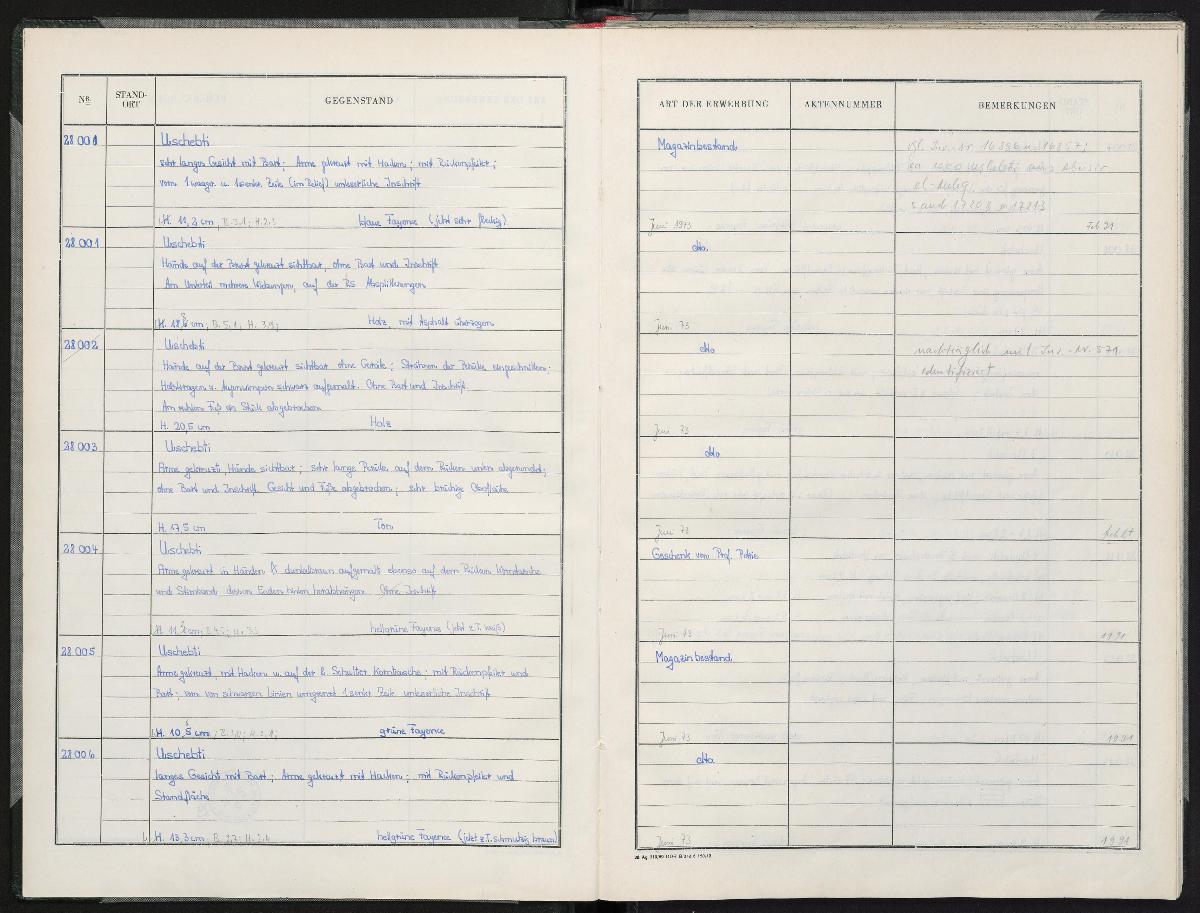 Nr.
STAND-
ORT
GEGENSTAND
28001
Uschebti
sehr langes Gesicht mit Bart; Arme gekreuzt mit Hacken; mit Rückenpfeiler;
vorn 1 waager. u. 1 senkr. Zeile (im Relief) unleserliche Inschrift
H. 11,2 cm, B. 3,1; H. 2,3 blaue Fayence (jetzt sehr fleckig)
28001
Uschebti
Hände auf der Brust gekreuzt sichtbar, ohne Bart und Inschrift
Am Unterteil mehrere auf der RS Absplitterungen
H. 18,5 cm, B. 5,1; H. 3,9; Holz, mit Asphalt überzogen
28002
Uschebti
Hände auf der Brust gekreuzt sichtbar ohne Geräte; Strähnen der Perücke eingeschnitten.
Halskragen u. Augenwimpern schwarz aufgemalt. Ohne Bart und Inschrift.
Am rechten Fuß ein Stück abgebrochen
H. 20,5 cm Holz
28003
Uschebti
Arme gekreuzt, Hände sichtbar; sehr lange Perücke, auf dem Rücken unten abgerundet;
ohne Bart und Inschrift. Gesicht und Füße abgebrochen; sehr brüchige Oberfläche
H. 17,5 cm Ton
28004
Uschebti
Arme gekreuzt in Händen dunkelbraun aufgemalt ebenso auf dem Rücken Korntasche
und Stirnband dessen Enden hinten herabhängen. Ohne Inschrift
H. 11, cm hellgrüne Fayence (jetzt z.T. weiß)
28005
Uschebti
Arme gekreuzt, mit Hacken u. auf der l. Schulter Korntasche; mit Rückenpfeiler und
Bart; vorn von schwarzen Linien umgrenzt 1 senkr. Zeile unleserliche Inschrift
H. 10,5 cm; grüne Fayence
28006
Uschebti
langes Gesicht mit Bart; Arme gekreuzt mit Hacken; mit Rückenpfeiler und
Standfläche
H. 13,3 cm, B. 3,7; H. 2,4 hellgrüne Fayence (jetzt z.T. schmutzig braun)
ART DER ERWERBUNG
AKTENNUMMER
BEMERKUNGEN
Magazinbestand
Vgl. Inv.-Nr. 16896 u. 16857;
el-Aulaq
s. auch 17208 u. 17213
Juni 1973
Feb 91
dto.
Juni 73
dto
nachträglich mit Inv.-Nr. 571
identifiziert
Juni 73
dto
Juni 73
Geschenk von Prof. Petrie
Juni 73
1991
Magazinbestand
Juni 73
1991
dto
Juni 73
1991